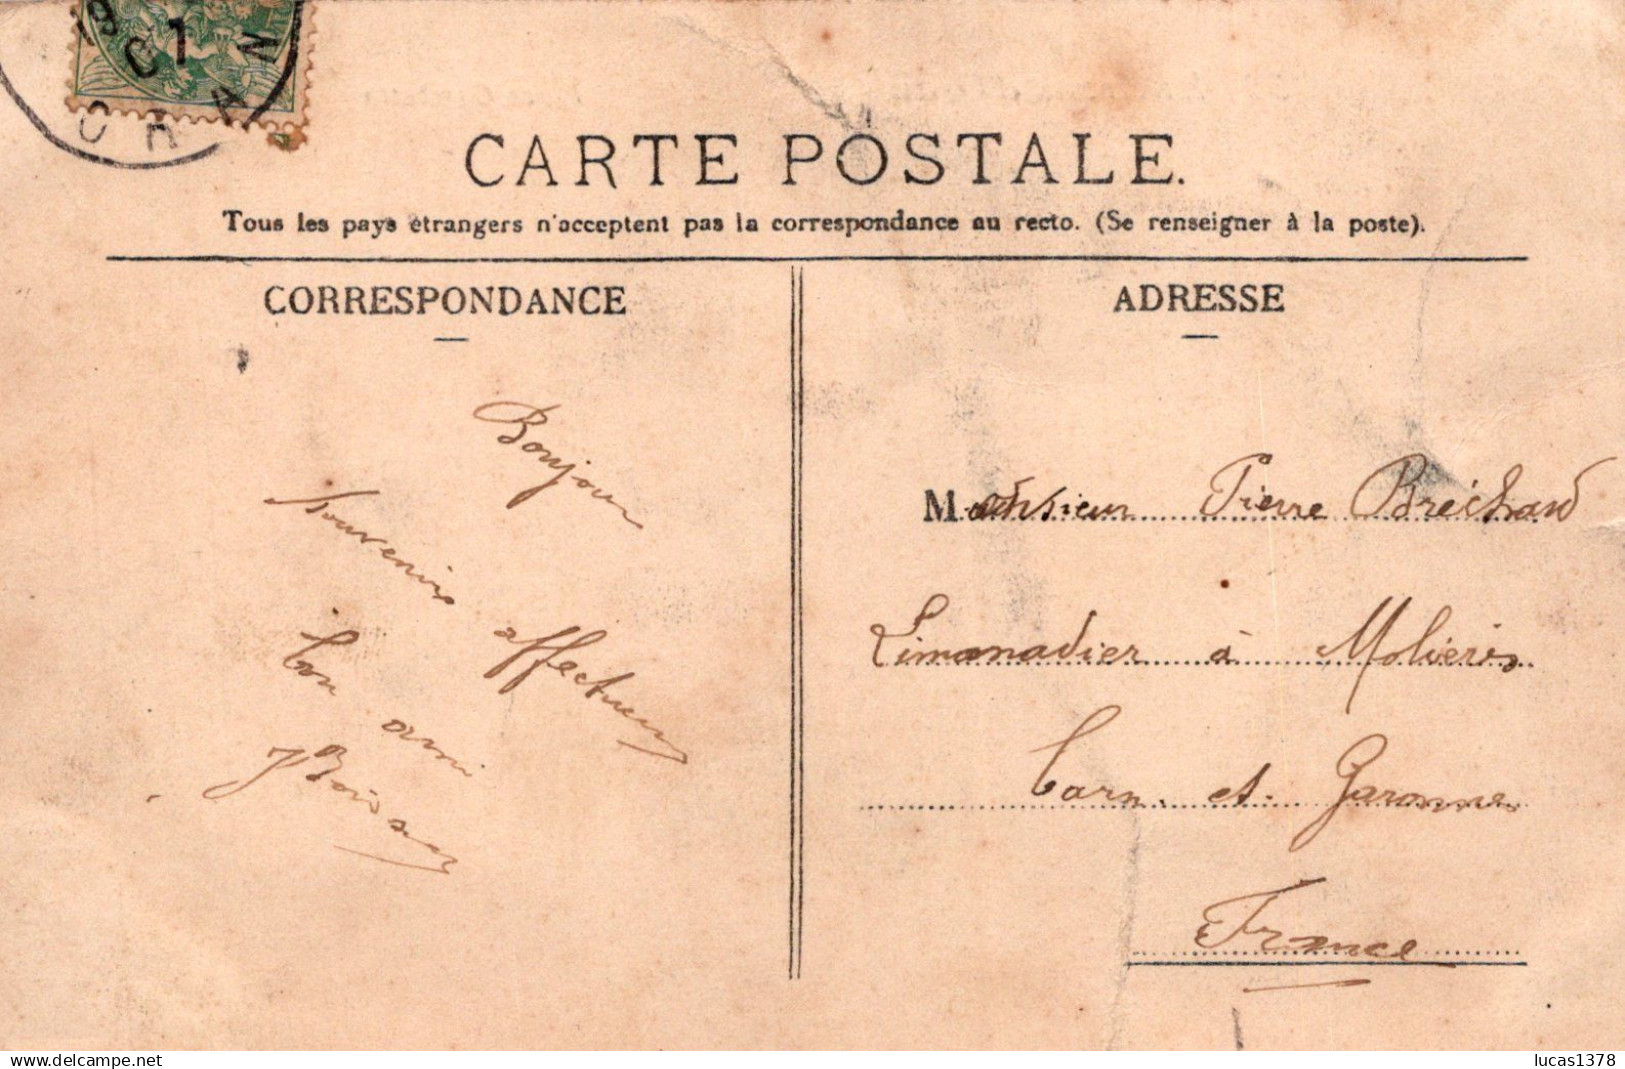 CARTE POSTALE.
Tous les pays étrangers n'acceptent pas la correspondance au recto. (Se renseigner à la poste).
CORRESPONDANCE
ADRESSE
Bonjour
Souvenirs affectueux
ton ami
Monsieur Pierre Bréchard
Limonadier à Molières
Tarn et Garonne
France
lucas1378